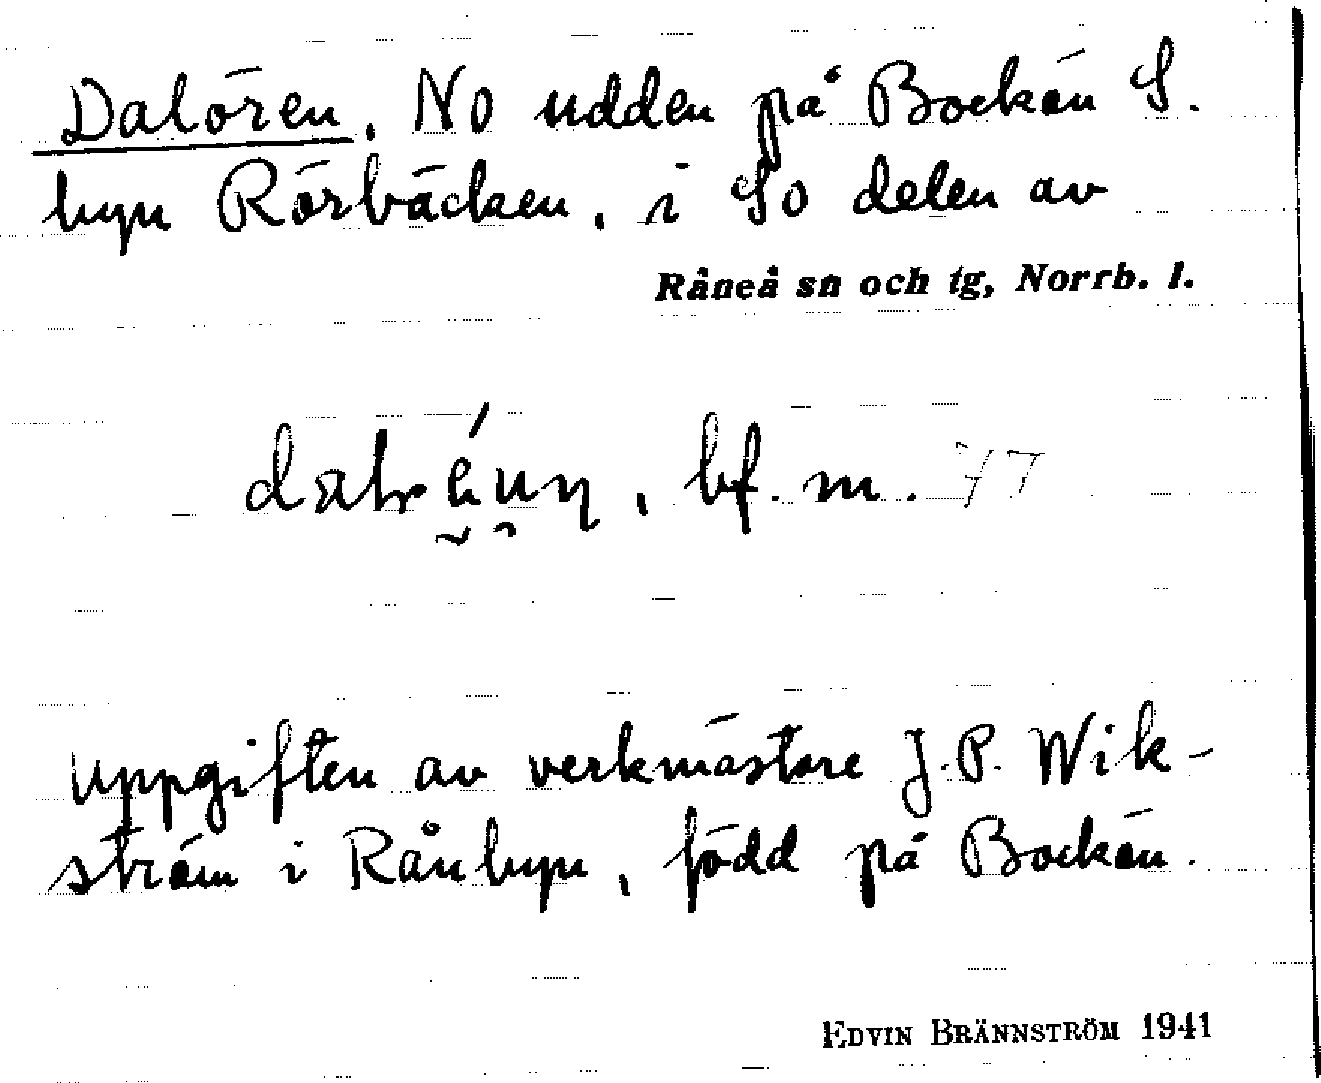 Dalören. No udden på Bockön S.
byn Rörbäcken, i So delen av
Råneå sn och tg, Norrb. l.
bf. m. 77
Uppgiften av verkmästare J.P. Wik-
ström i Rånbyn, född på Bockön.
EDVIN BRÄNNSTRÖM 1941